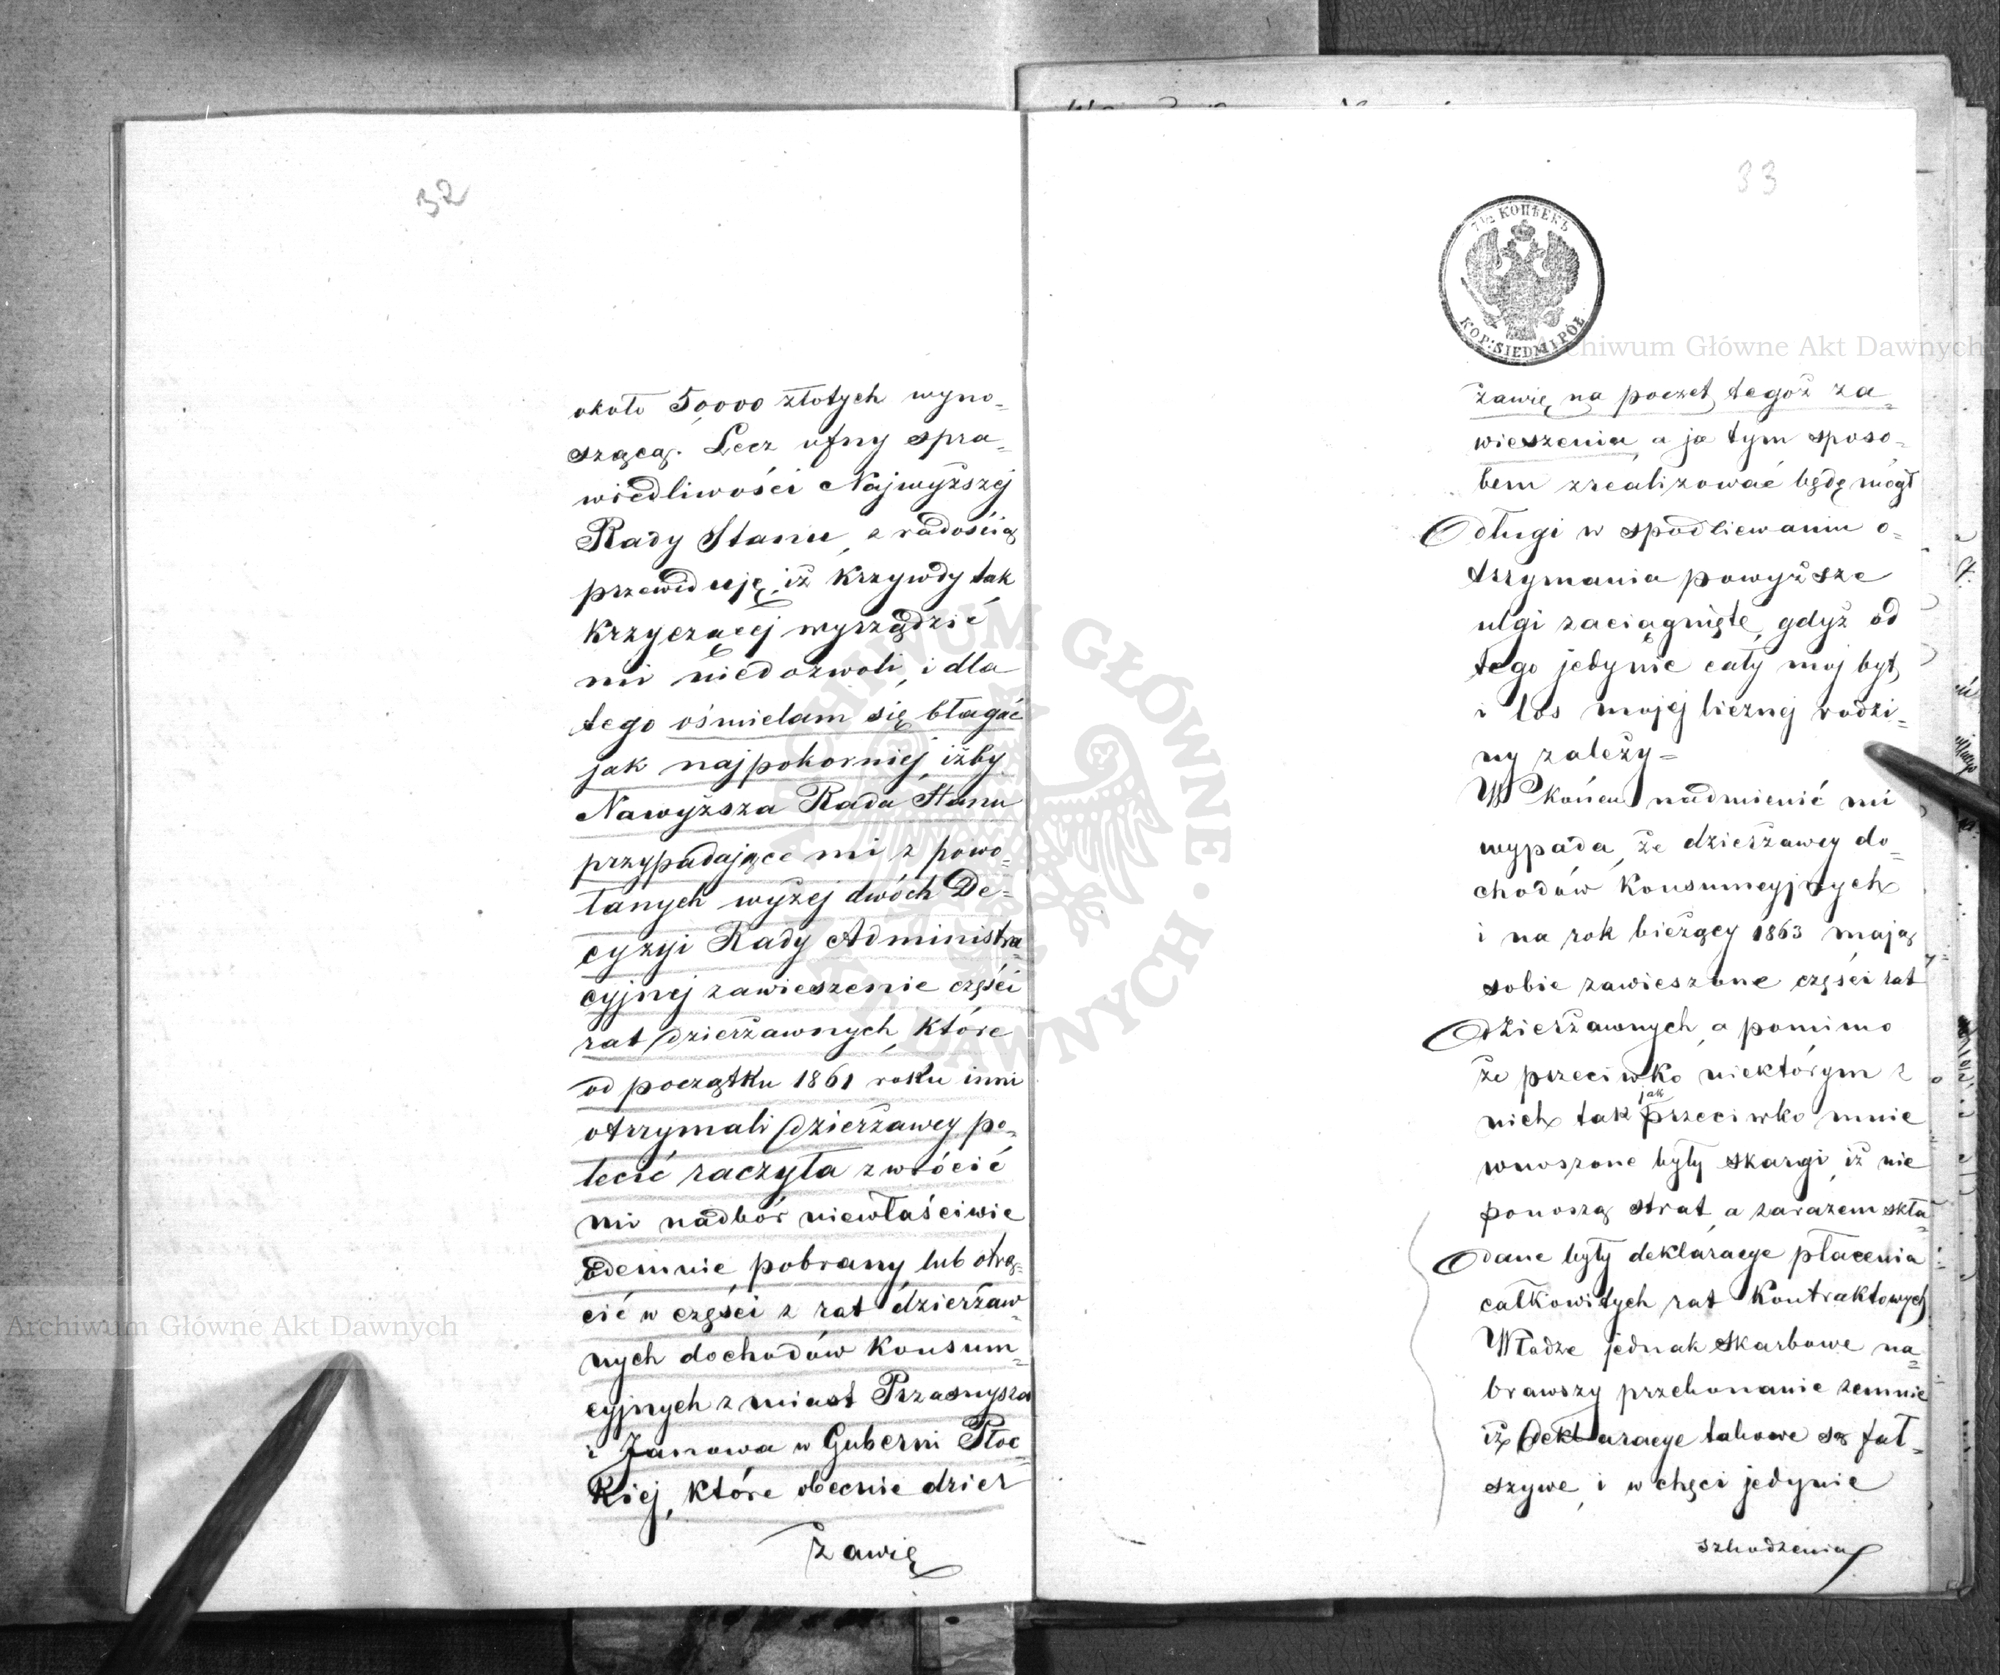 32
około 50,000 złotych wyno-
szącą. Lecz ufny spra-
wiedliwości Najwyższej
Rady Stanu, z radością
przewiduję, iż krzywdy tak
krzyczącej wyrządzić
mi niedozwoli, i dla
tego ośmielam się błagać
jak najpokorniej, iżby
Nawyższa Rada Stanu
przypadające mi z powo-
łanych wyżej dwóch De-
cyzyi Rady Administra-
cyjnej zawieszenie części
rat dzierżawnych, które
od początku 1861 roku inni
otrzymali dzierżawcy po-
lecić raczyła zwrócić
mi nadbór niewłaściwie
odemnie pobrany, lub otrą-
cić w części z rat dzierżaw-
nych dochodów konsum-
cyjnych z miast Przasnysza
i Janowa w Guberni Płoc-
kiej, które obecnie dzier
żawię
33
7 1/2 КОПѢЕКЪ
KOP: SIEDM I PÓŁ
żawię, na poczet tegoż za-
wieszenia, a ja tym sposo-
bem zrealizować będę mógł
długi w spodziewaniu o-
trzymania powyższe
ulgi zaciągnięte, gdyż od
tego jedynie cały mój byt,
i los mojej licznej rodzi-
ny zależy=
W końcu nadmienić mi
wypada, że dzierżawcy do-
chodów konsumcyjnych
i na rok bieżący 1863 mają
sobie zawieszone części rat
dzierżawnych, a pomimo
że przeciwko niektórym z
nich tak jak przeciwko mnie
wnoszone były skargi, iż nie
ponoszą strat, a zarazem skła-
dane były deklaracye płacenia
całkowitych rat kontraktowych
Władze jednak skarbowe na-
brawszy przekonanie zemnie
iż deklaracye takowe są fał-
szywe, i w chęci jedynie
szkodzenia
Archiwum Główne Akt Dawnych
Archiwum Główne Akt Dawnych
ARCHIWUM GŁÓWNE AKT DAWNYCH